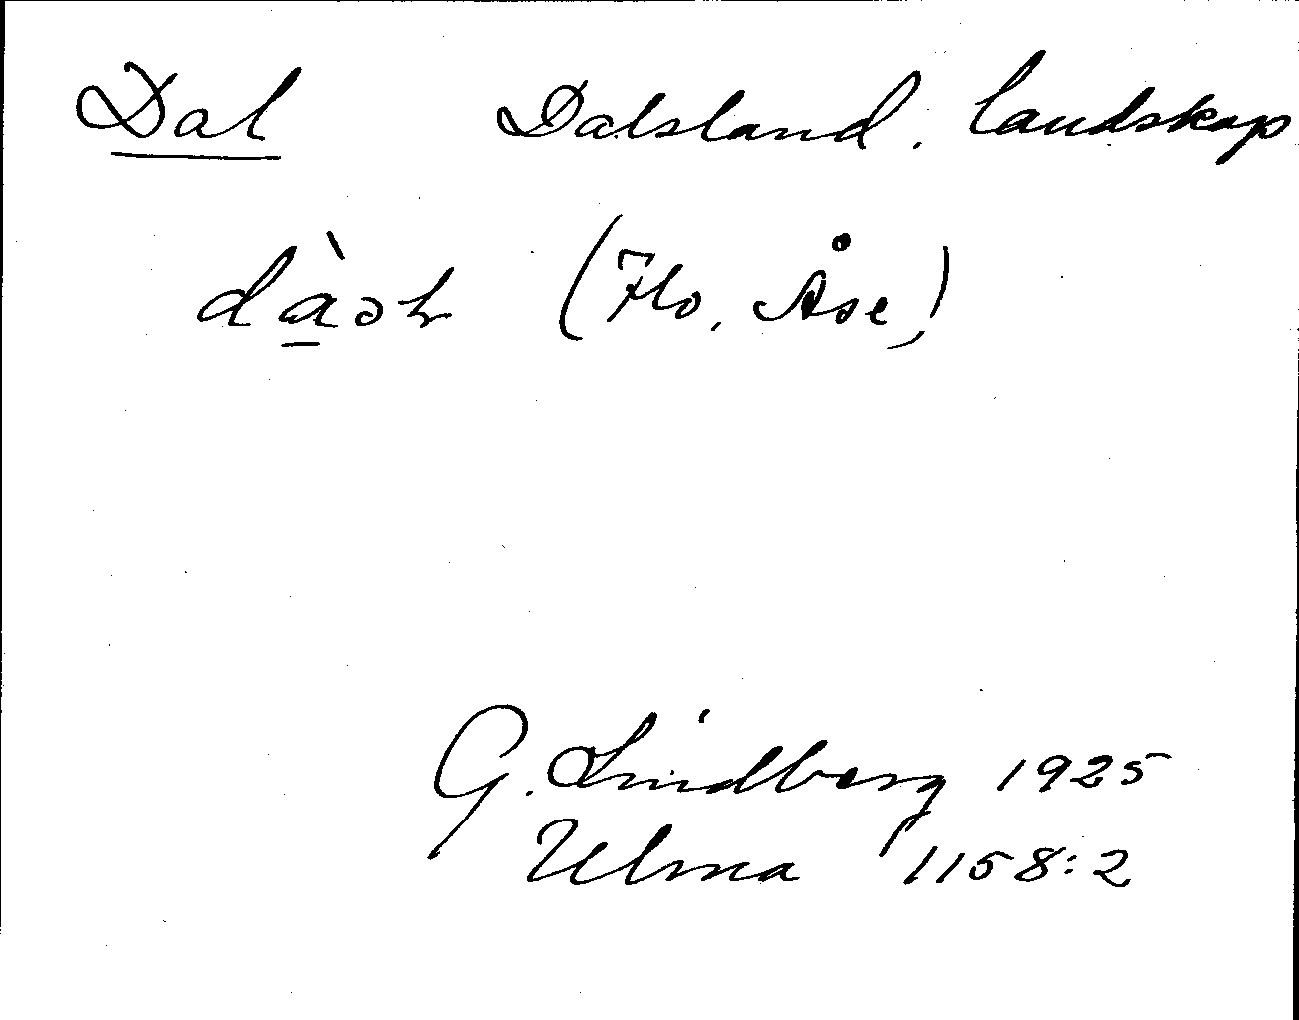 Dal Dalsland, landskap
(Flo, Åse)
G. Lindberg 1925
Ulma 1158:2